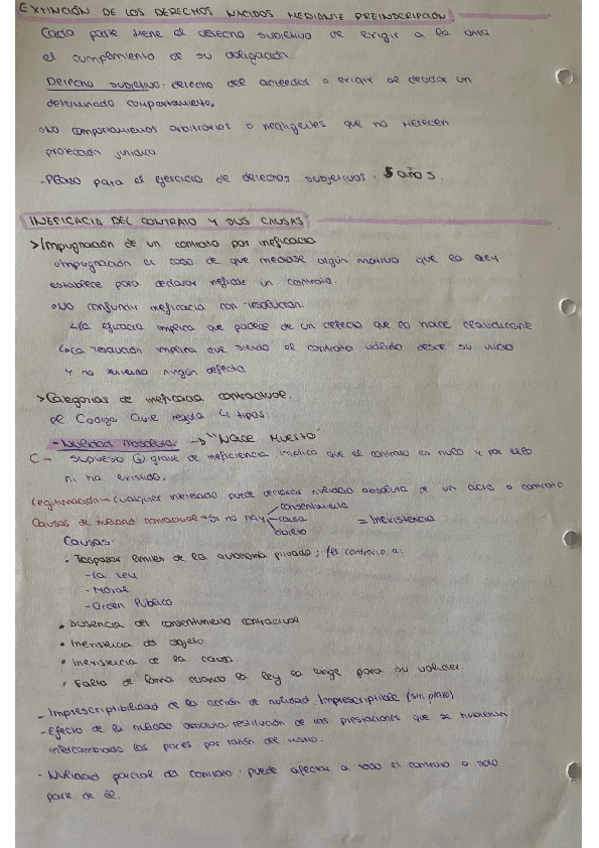 EXTINCIÓN DE LOS DERECHOS NACIDOS MEDIANTE PREINSCRIPCIÓN
Cada parte tiene el derecho subjetivo de exigir a la otra
el cumplimiento de su obligación.
Derecho subjetivo: derecho del acreedor a exigir al deudor un
determinado comportamiento.
No comportamientos arbitrarios o negligentes que no merecen
protección jurídica
-Plazo para el ejercicio de derechos subjetivos: 5 años.
INEFICACIA DEL CONTRATO Y SUS CAUSAS
>Impugnación de un contrato por ineficacia
Impugnación en caso de que mediase algún motivo que la ley
establece para declarar ineficaz un contrato.
No confundir ineficacia con resolución.
La eficacia implica que padece de un defecto que lo hace claudicante
La resolución implica que siendo el contrato válido desde su inicio
y no teniendo ningún defecto
>Categorías de ineficacia contractual.
el Código Civil regula 4 tipos:
- Nulidad Absoluta → "NACE MUERTO"
C → supuesto ⊕ grave de ineficiencia, implica que el contrato en nulo y por ello
ni ha existido.
Legitimación → cualquier interesado puede declarar nulidad absoluta de un acto o contrato
Causas de nulidad contractual → si no hay consentimiento
causa = Inexistencia
objeto
Causas:
• Traspasar límites de la autonomía privada; es contrario a:
- La Ley
- Moral
- Orden Público
• Ausencia del consentimiento contractual
• Inexistencia del objeto
• Inexistencia de la causa
• Falta de forma cuando la ley la exige para su validez.
- Imprescriptibilidad de la acción de nulidad. Imprescriptible (sin plazo)
- Efecto de la nulidad absoluta restitución de las prestaciones que se hubieran
intercambiado las partes por razón del mismo.
- Nulidad parcial del contrato: puede afectar a todo el contrato o solo
parte de él.